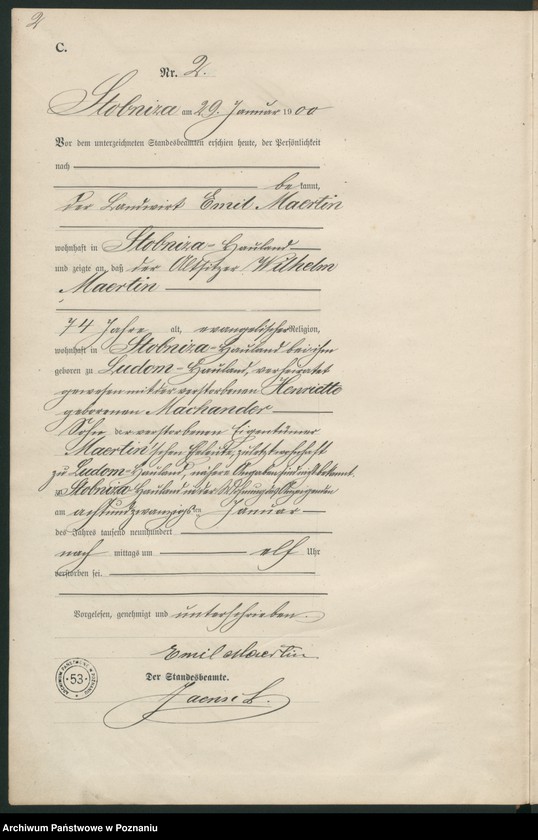 2
C.
Nr. 2.
Stobniza am 29. Januar 1900
Vor dem unterzeichneten Standesbeamten erschien heute, der Persönlichkeit
nach
bekannt,
der Landwirt Emil Maertin
wohnhaft in Stobniza-Hauland
und zeigte an, daß der Altsitzer Wilhelm
Maertin
74 Jahre alt, evangelischer Religion,
wohnhaft in Stobniza-Hauland bei ihm
geboren zu Ludom-Hauland, verheiratet
gewesen mit der verstorbenen Henriette
geborenen Machander
Sohn der verstorbenen Eigentümer
Maertin'schen Eheleute, zuletzt wohnhaft
zu Ludom-Hauland, nähere Angaben sind nicht bekannt.
zu Stobniza Hauland in der Wohnung des Anzeigenden
am achtundzwanzigsten Januar
des Jahres tausend neunhundert
nach mittags um elf Uhr
verstorben sei.
Vorgelesen, genehmigt und unterschrieben.
Emil Maertin
Der Standesbeamte.
ARCHIWUM PAŃSTWOWE W POZNANIU
53
Archiwum Państwowe w Poznaniu